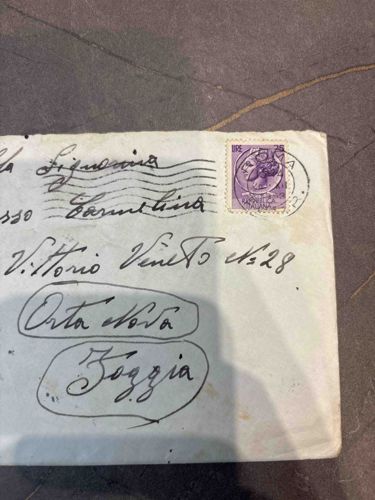 LIRE 25
lla Signorina
sso Carmelina
Vittorio Veneto No 28
Orta Nova
Foggia